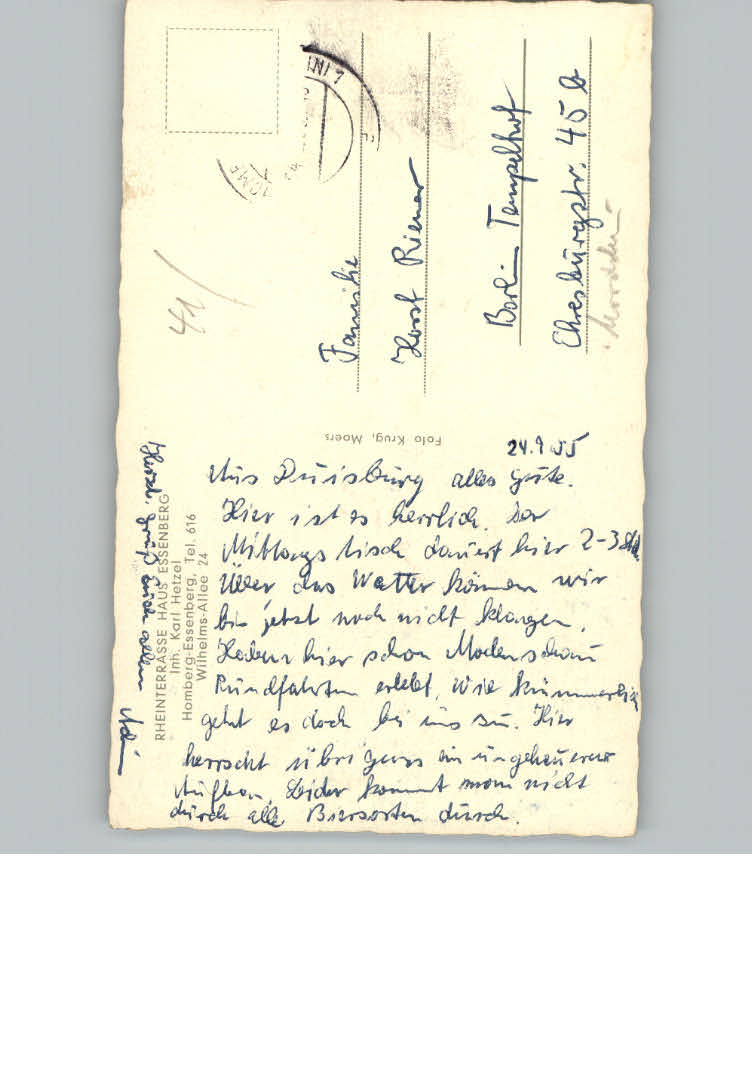 24.9.55
Aus Duisburg alles gute.
Hier ist es herrlich. Der
Mittags tisch dauert hier 2-3 Std.
Über das Wetter können wir
bis jetzt noch nicht klagen.
Haben hier schon Modenschau
Rundfahrten erlebt, wie kümmerlich
geht es doch bei uns zu. Hier
herrscht übrigens ein ungeheurer
Aufbau. Leider kommt man nicht
durch alle Biersorten durch.
Herzl. Grüß Euch allen
RHEINTERRASSE HAUS ESSENBERG
Inh. Karl Hetzel
Homberg-Essenberg, Tel. 616
Wilhelms-Allee 24
Foto Krug, Moers
Familie
Horst Riemer
Berlin Tempelhof
Ehresburgstr. 45 b
41/